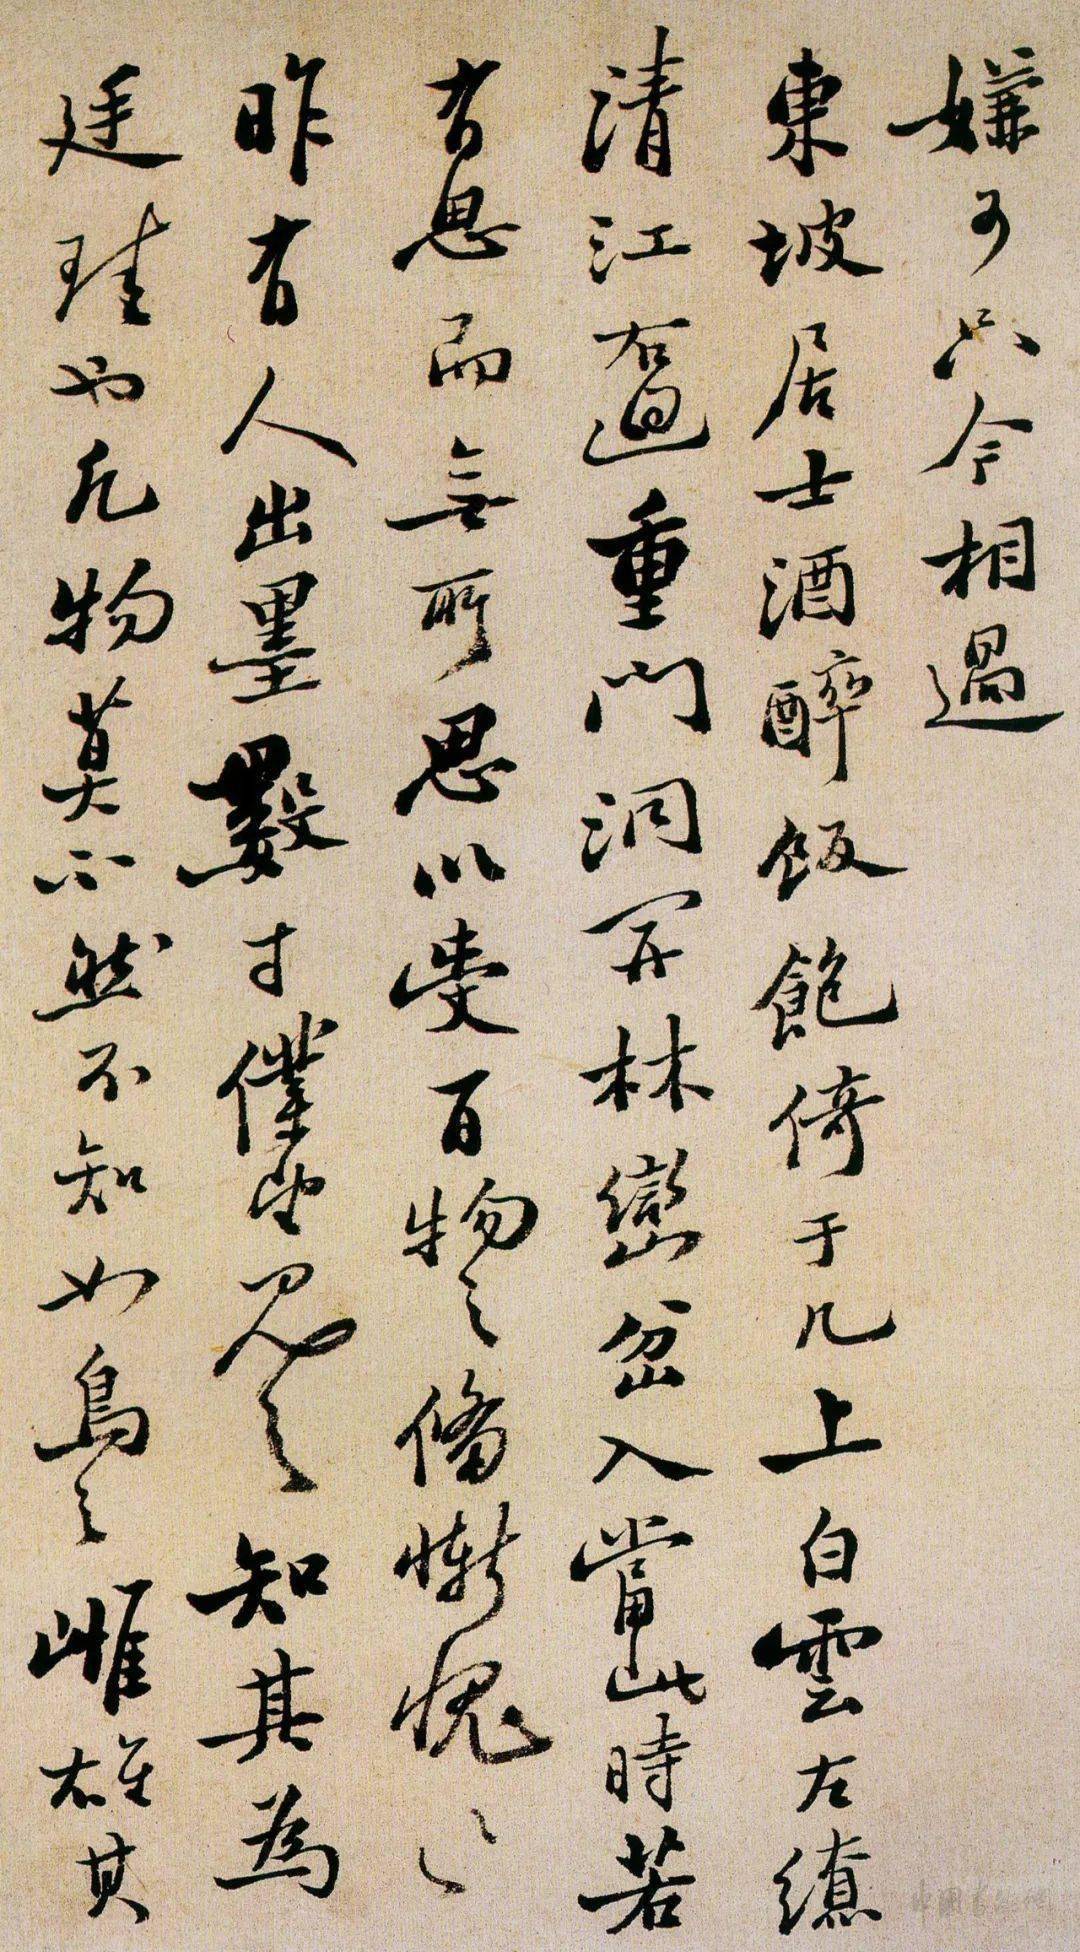 嫌可只今相過
東坡居士酒醉飯飽倚于几上白雲左繚
清江右迴重門洞開林巒岔入當此時若
有思而無所思以受百物之備慚愧慚愧
昨有人出墨數寸僕望見之知其為
廷珪也凡物莫不然不知如鳥之雌雄其